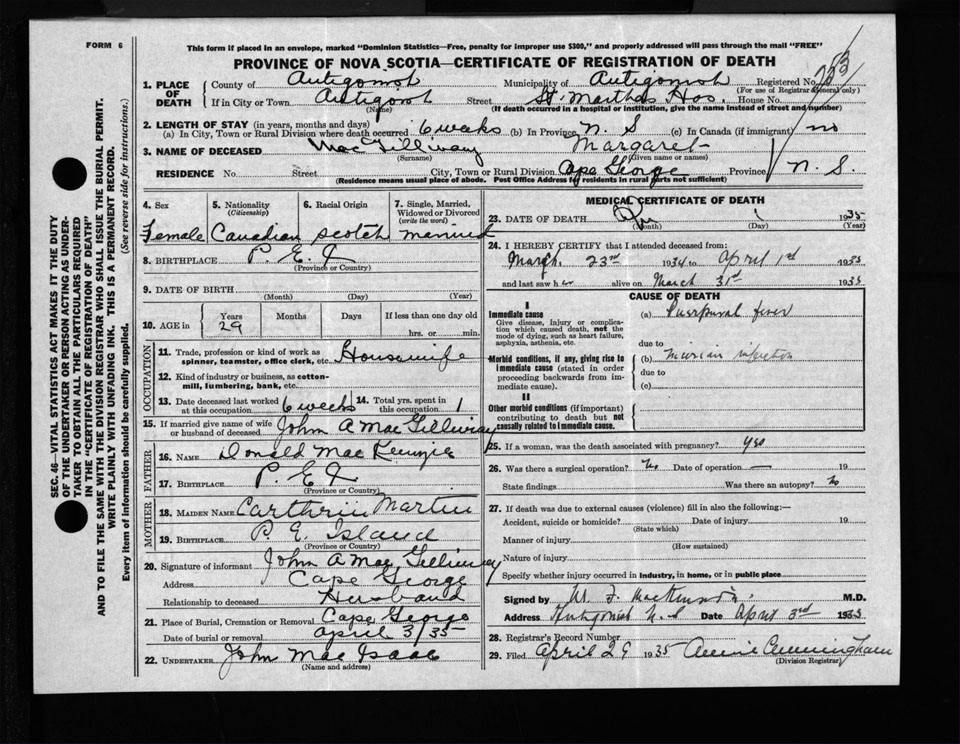 FORM 6
This form if placed in an envelope, marked "Dominion Statistics—Free, penalty for improper use $300," and properly addressed will pass through the mail "FREE"
PROVINCE OF NOVA SCOTIA—CERTIFICATE OF REGISTRATION OF DEATH
SEC. 46—VITAL STATISTICS ACT MAKES IT THE DUTY
OF THE UNDERTAKER OR PERSON ACTING AS UNDER-
TAKER TO OBTAIN ALL THE PARTICULARS REQUIRED
IN THE "CERTIFICATE OF REGISTRATION OF DEATH"
AND TO FILE THE SAME WITH THE DIVISION REGISTRAR WHO SHALL ISSUE THE BURIAL PERMIT.
WRITE PLAINLY WITH UNFADING INK. THIS IS A PERMANENT RECORD.
Every item of information should be carefully supplied. (See reverse side for instructions.)
1. PLACE OF DEATH County of Antigonish Municipality of Antigonish Registered No.
(For use of Registrar General only)
If in City or Town Antigonish Street St. Marthas Hos. House No.
(Name) (If death occurred in a hospital or institution, give the name instead of street and number)
2. LENGTH OF STAY (in years, months and days)
(a) In City, Town or Rural Division where death occurred 6 weeks (b) In Province N. S (c) In Canada (if immigrant) no
3. NAME OF DECEASED MacGillivray Margaret
(Surname) (Given name or names)
RESIDENCE No. Street City, Town or Rural Division Cape George Province N. S.
(Residence means usual place of abode. Post Office Address for residents in rural parts not sufficient)
4. Sex 5. Nationality (Citizenship) 6. Racial Origin 7. Single, Married, Widowed or Divorced (write the word)
Female Canadian Scotch married
8. BIRTHPLACE P. E. I
(Province or Country)
9. DATE OF BIRTH
(Month) (Day) (Year)
10. AGE in Years Months Days If less than one day old
29 hrs. or min.
OCCUPATION
11. Trade, profession or kind of work as spinner, teamster, office clerk, etc. Housewife
12. Kind of industry or business, as cotton-mill, lumbering, bank, etc.
13. Date deceased last worked at this occupation 6 weeks 14. Total yrs. spent in this occupation 1
15. If married give name of wife or husband of deceased John A MacGillivray
FATHER
16. NAME Donald Mac Kenzie
17. BIRTHPLACE P. E I
(Province or Country)
MOTHER
18. MAIDEN NAME Carthrin Martin
19. BIRTHPLACE P. E. Island
(Province or Country)
20. Signature of informant John A Mac Gillivray
Address Cape George
Relationship to deceased Husband
21. Place of Burial, Cremation or Removal Cape George
Date of burial or removal april 3/35
22. UNDERTAKER John Mac Isaac
(Name and address)
MEDICAL CERTIFICATE OF DEATH
23. DATE OF DEATH 1 1935
(Month) (Day) (Year)
24. I HEREBY CERTIFY that I attended deceased from:
March 23rd 1934 to April 1st 1935
and last saw her alive on March 31st 1935
CAUSE OF DEATH
I
Immediate cause
Give disease, injury or complication which caused death, not the mode of dying, such as heart failure, asphyxia, asthenia, etc.
(a) Puerpural fever
due to
Morbid conditions, if any, giving rise to immediate cause (stated in order proceeding backwards from immediate cause).
(b)
due to
(c)
II
Other morbid conditions (if important) contributing to death but not causally related to immediate cause.
25. If a woman, was the death associated with pregnancy? yes
26. Was there a surgical operation? No Date of operation — 19
State findings Was there an autopsy? no
27. If death was due to external causes (violence) fill in also the following:—
Accident, suicide or homicide? Date of injury 19
(State which)
Manner of injury
(How sustained)
Nature of injury
Specify whether injury occurred in industry, in home, or in public place
Signed by M.D.
Address Antigonish N. S Date April 3rd 1935
28. Registrar's Record Number
29. Filed April 29 1935 Annie Cunningham
(Division Registrar)